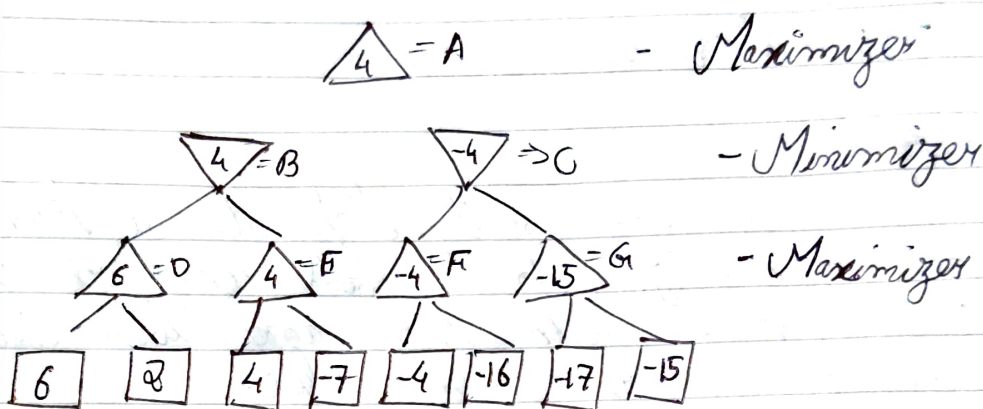 4 = A - Maximizer
4 = B -4 => C - Minimizer
6 = D 4 = E -4 = F -15 = G - Maximizer
6 2 4 -7 -4 -16 -17 -15